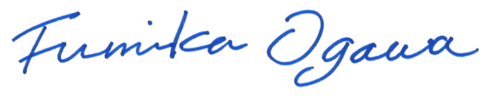 Fumika Ogawa